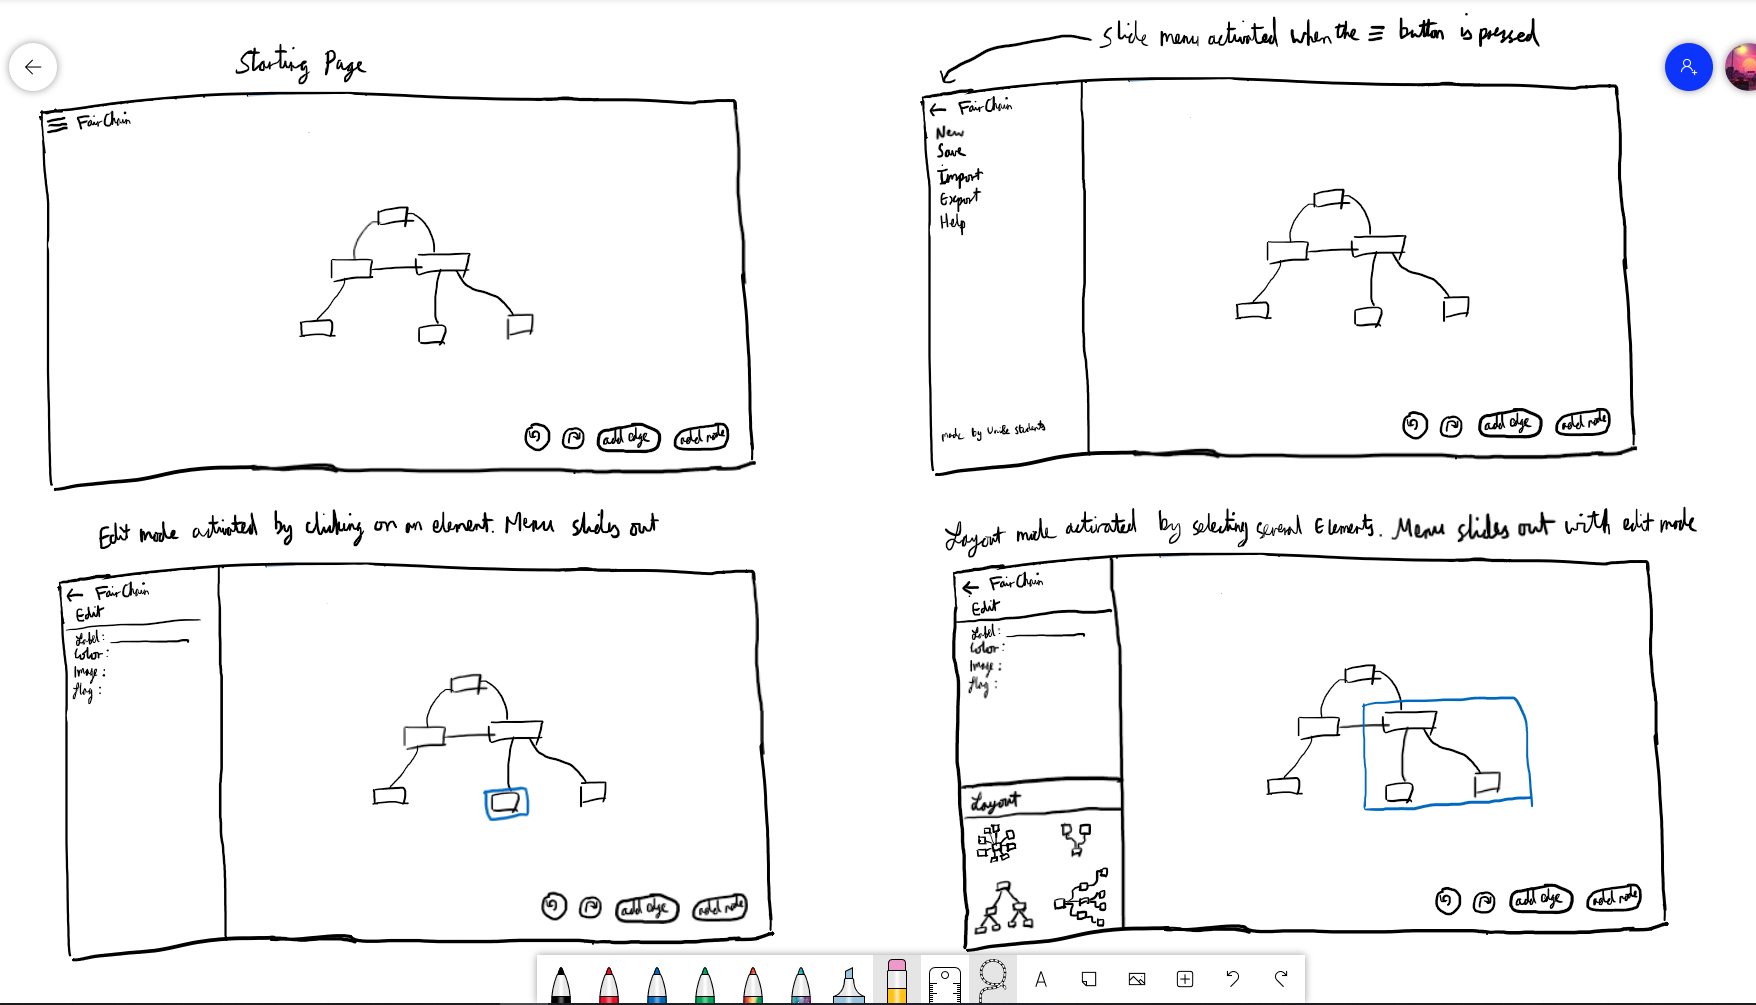 Starting Page
☰ FairChain
add edge
add node
Slide menu activated when the ☰ button is pressed
← FairChain
New
Save
Import
Export
Help
made by UniBe students
add edge
add node
Edit mode activated by clicking on an element. Menu slides out
← FairChain
Edit
Label:
Color:
Image:
Flag:
add edge
add node
Layout mode activated by selecting several Elements. Menu slides out with edit mode
← FairChain
Edit
Label:
Color:
Image:
Flag:
Layout
add edge
add node
A